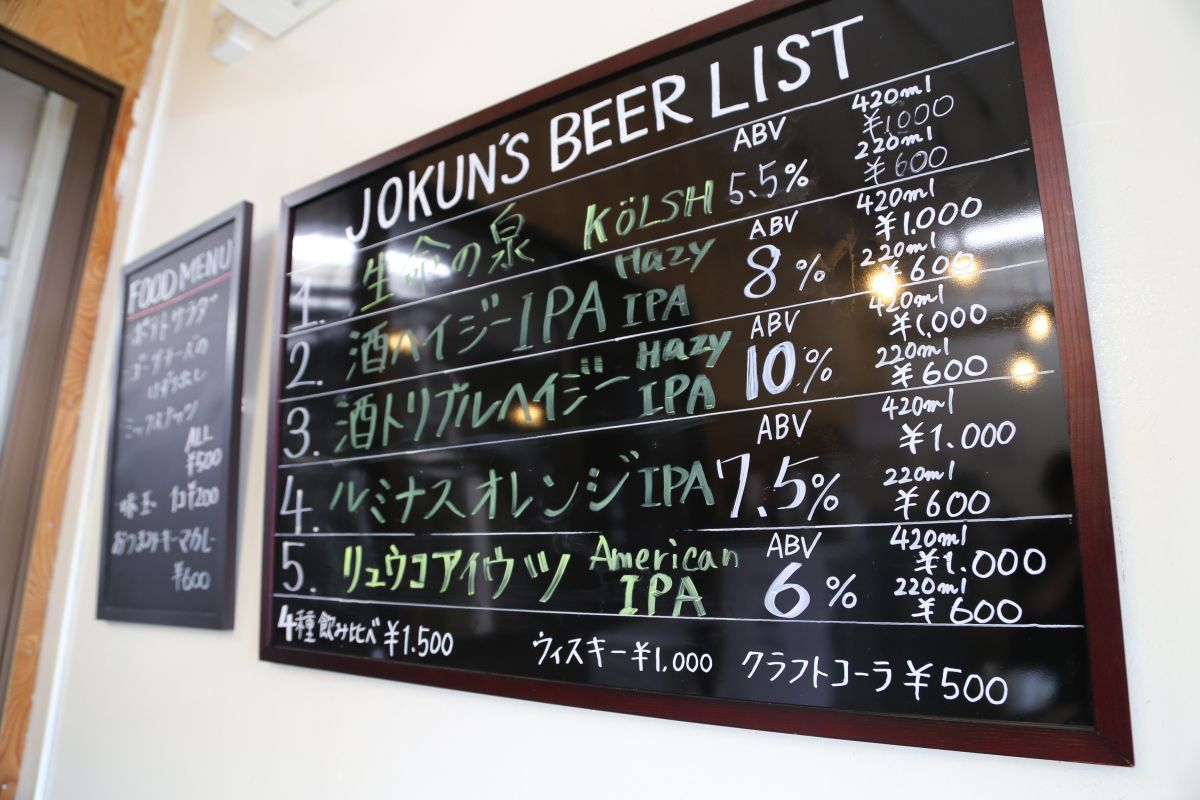 FOOD MENU
ポテトサラダ
ゴーダチーズの
ミックスナッツ
ALL
¥500
味玉 1コ¥200
おつまみキーマカレー
¥600
JOKUN'S BEER LIST
1. 生命の泉 KÖLSH ABV 5.5% 420ml ¥1000 220ml ¥600
2. 酒ヘイジーIPA Hazy IPA ABV 8% 420ml ¥1.000 220ml ¥600
3. 酒トリプルヘイジー Hazy IPA ABV 10% 420ml ¥1,000 220ml ¥600
4. ルミナスオレンジIPA ABV 7.5% 420ml ¥1.000 220ml ¥600
5. リュウコアイウツ American IPA ABV 6% 420ml ¥1.000 220ml ¥600
4種飲み比べ ¥1.500 ウィスキー ¥1,000 クラフトコーラ ¥500